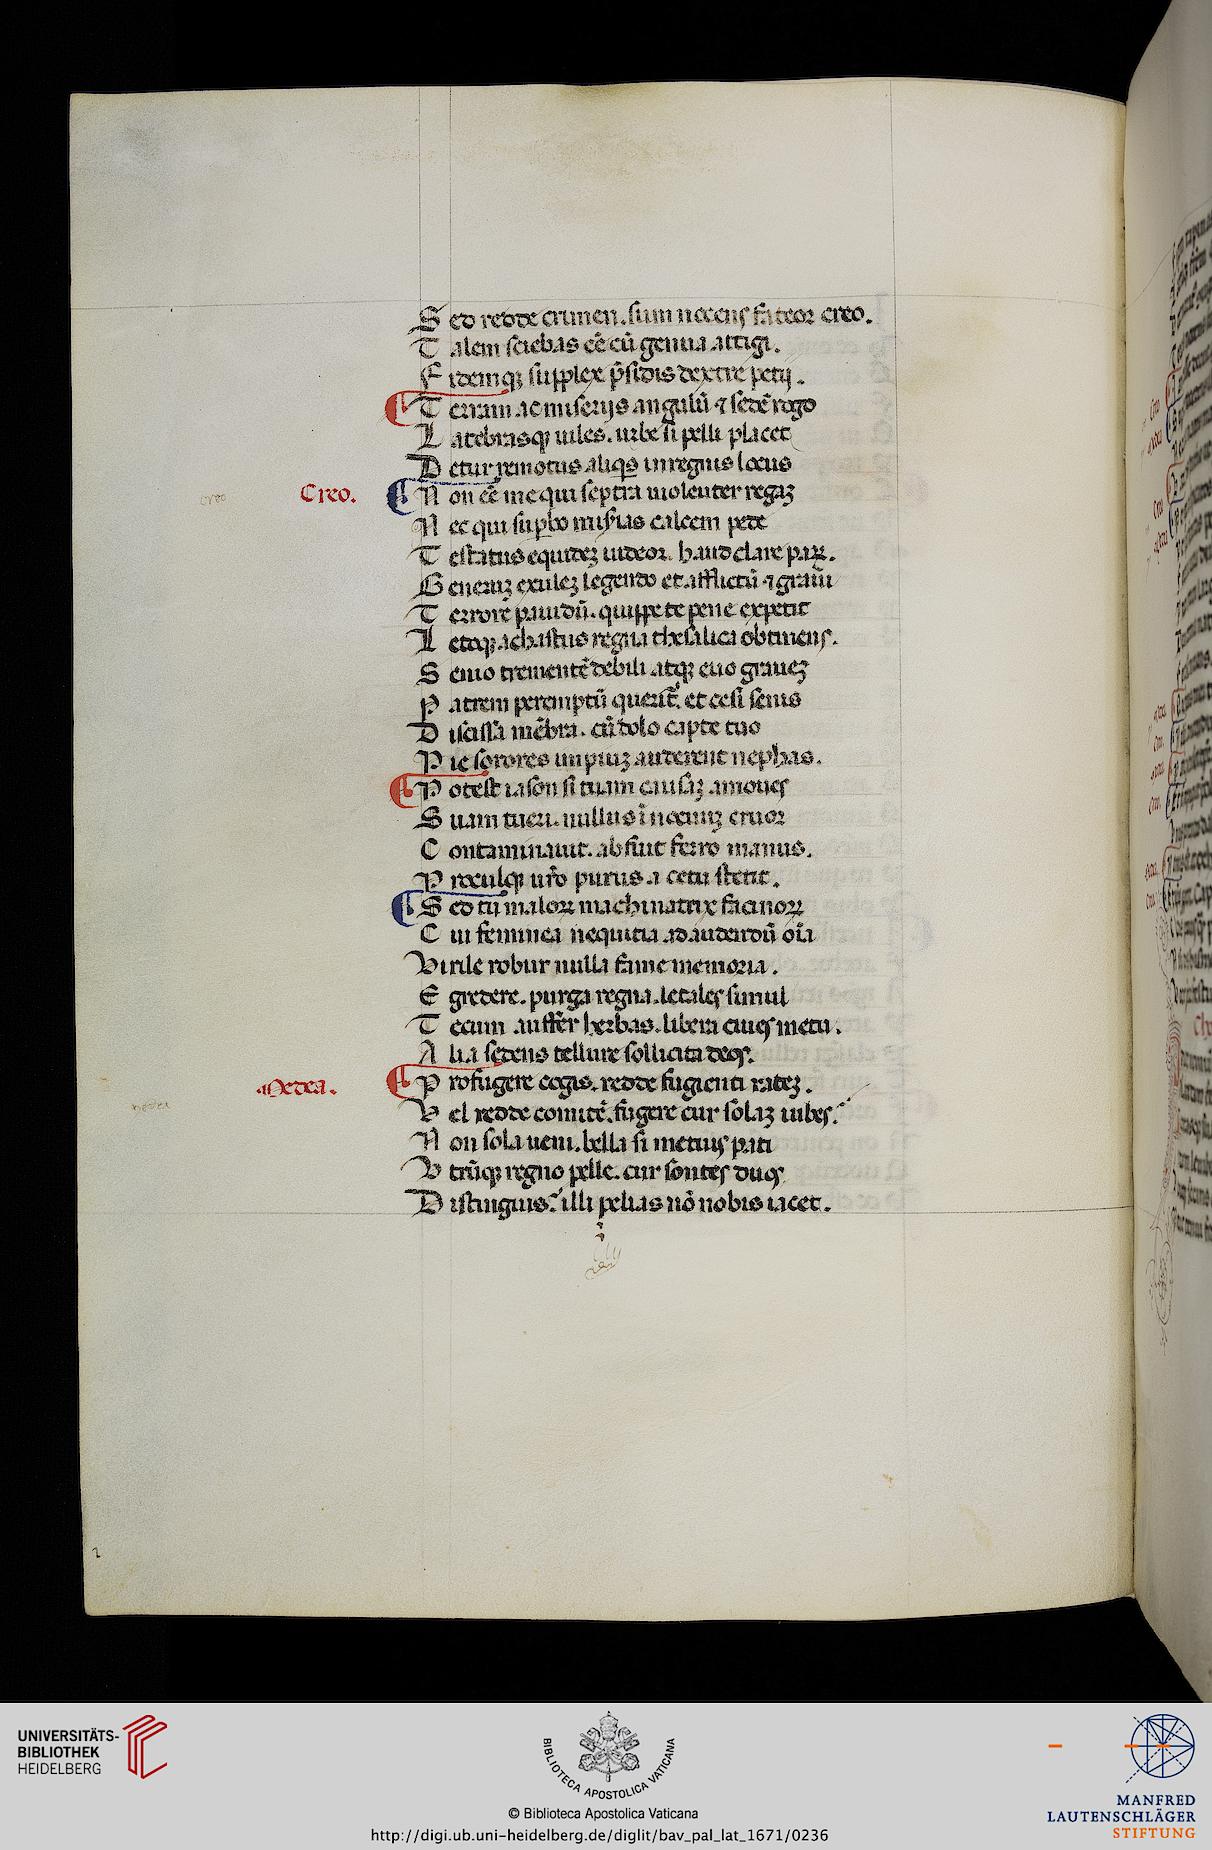 Sed redde crimen. sum nocens fateor creo.
Talem sciebas cē cū genua attigi.
Fidemqꝫ supplex p̄sidis dextre petij.
Terram ac miserijs angulū ⁊ sedē rogo
Latebrasqꝫ uiles. urbe si pelli placet
Detur remotus aliqs in regnis locus
creo
Creo.
Non eē me qui septra uiolenter regaꝫ
Nec qui supbo misias calcem pede
Testatus equideꝫ uideor. haud clare paꝝ.
Generuꝫ exuleꝫ legendo et afflictū ⁊ graui
Terrore pauidū. quippe te pene expetit
Letoqꝫ achastus regna thesalica obtinens.
Senio trementē debili atqꝫ euo graueꝫ
Patrem peremptū querit. et cesi senis
Discissa mēbra. cū dolo capte tuo
Pie sorores impiuꝫ auderent nephas.
Potest iason si tuam causaꝫ amoues
Suam tueri. nullus inocuuꝫ cruor
Contaminauit. abfuit ferro manus.
Proculqꝫ uro purus a cetu stetit.
Sed tu maloꝝ machinatrix facinoꝝ
Cui feminea nequitia ad audendū oīa
Virile robur nulla fame memoria.
Egredere. purga regna. letales simul
Tecum auffer herbas. libera ciues metu.
Alia sedens tellure sollicita deos.
medea
Medea.
Profugere cogis. redde fugienti rateꝫ.
Vel redde comitē. fugere cur solaꝫ iubes.
Non sola ueni. bella si metuis pati
Vtrūqꝫ regno pelle. cur sontes duos
Distinguis. illi pelias nō nobis iacet.
UNIVERSITÄTS-
BIBLIOTHEK
HEIDELBERG
BIBLIOTECA APOSTOLICA VATICANA
© Biblioteca Apostolica Vaticana
http://digi.ub.uni-heidelberg.de/diglit/bav_pal_lat_1671/0236
MANFRED
LAUTENSCHLÄGER
STIFTUNG